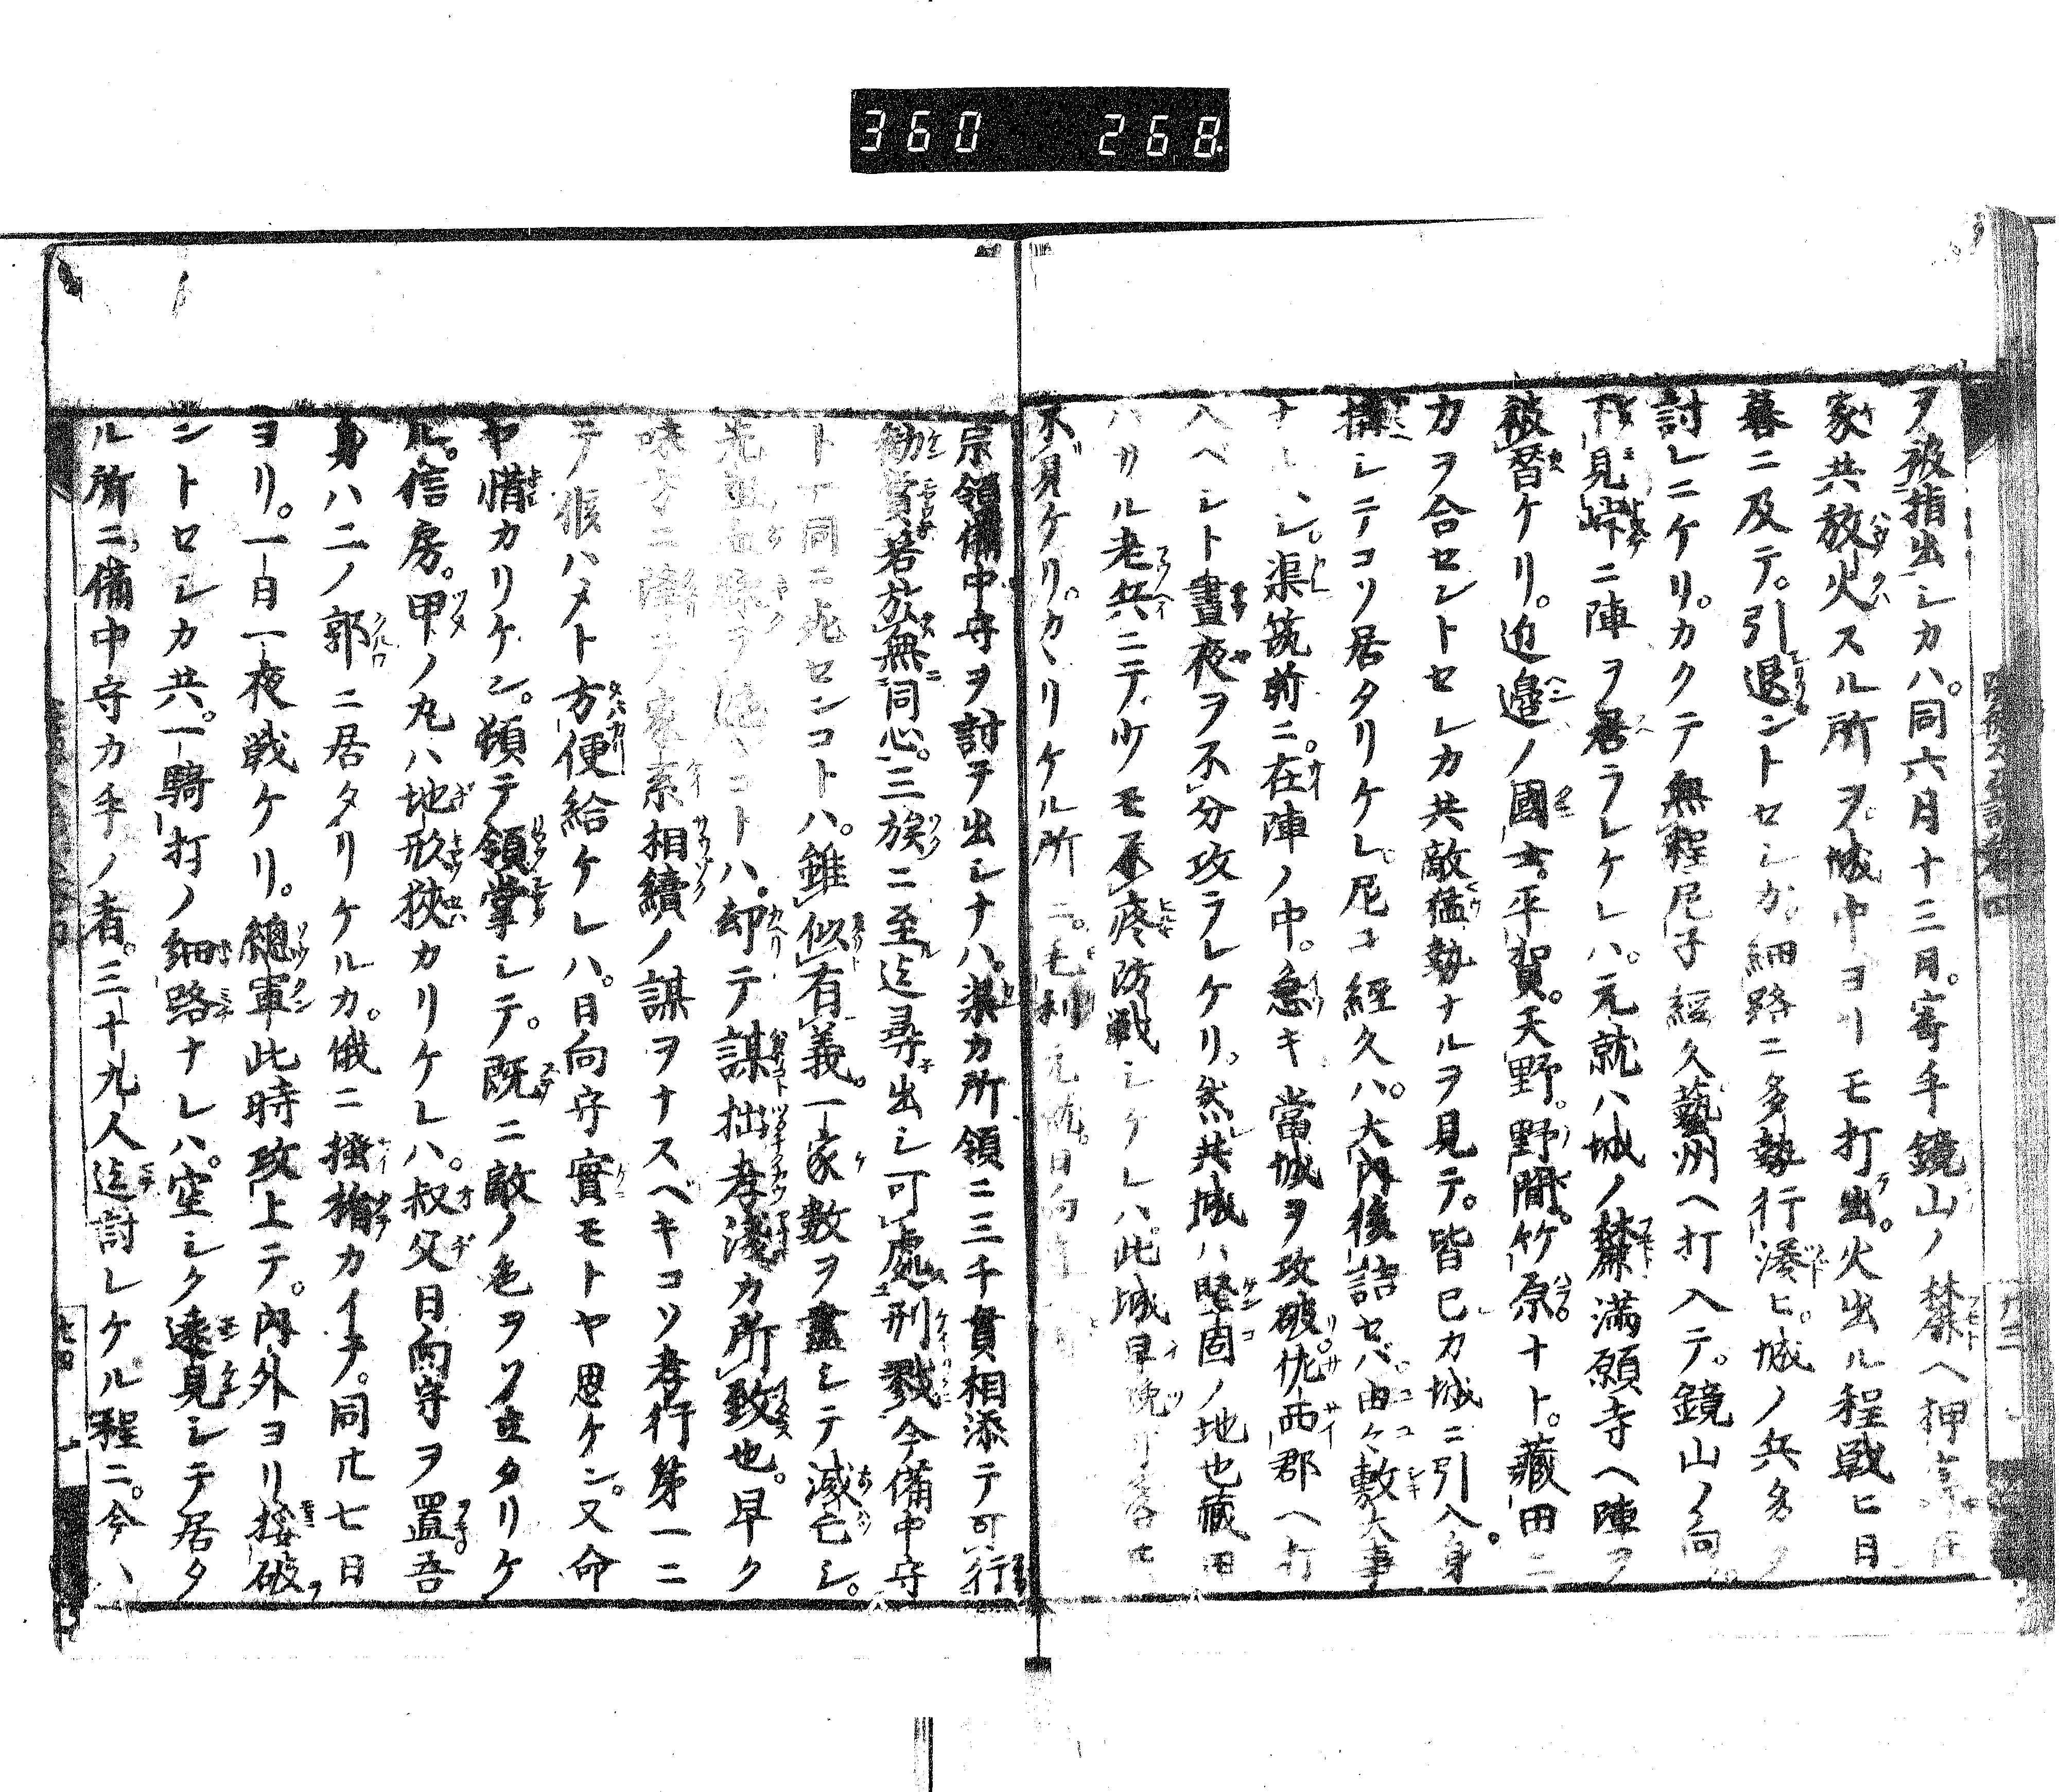 360 268
ヲ被指出シカハ。同六月十三日。寄手鏡山ノ麓ヘ押寄在
家共放火スル所ヲ。城中ヨリモ打出。火出ル程戰ヒ日
暮ニ及テ。引退ントセシカ。細路ニ多勢行湊ヒ。城ノ兵多ク
討レニケリ。カクテ無程尼子經久藝州ヘ打入テ。鏡山ノ向
下見峠ニ陣ヲ居ラレケレハ。元就ハ城ノ麓滿願寺ヘ陣ヲ
被替ケリ。近邊ノ國士。平賀。天野。野間。竹原ナト。藏田ニ
力ヲ合セントセレカ共敵猛勢ナルヲ見テ。皆己カ城ニ引入。身
構シテコソ居タリケレ。尼子經久ハ。大內後詰セバ。由々敷大事
ナレ。渠筑前ニ。在陣ノ中。急キ當城ヲ攻破リ。佐西郡ヘ打
入ベシト晝夜ヲ不分攻ラレケリ。然共城ハ堅固ノ地也藏田
ハサル老兵ニテ。少モ不疼防戰シケレハ。此城早晚可落トモ
不見ケリ。カヽリケル所ニ。毛利元就。日向守
宗領備中守ヲ討テ出シナハ。渠カ所領ニ三千貫相添テ可行
勸賞。若於無同心。三族ニ至迄尋出シ可處刑戮。今備中守
ト一同ニ死センコトハ。雖似有義。一家數ヲ盡シテ滅亡シ。
先血脉ヲ絕ンコトハ。却テ謀拙孝淺カ所致也。早ク
味方ニ降テ家系相續ノ謀ヲナスベキコソ孝行第一ニ
テ候ハメト方便給ケレハ。日向守實モトヤ思ケン。又命
ヤ惜カリケン。頓テ領掌シテ。既ニ敵ノ色ヲソ立タリケ
ル。信房。甲ノ丸ハ地形狹カリケレハ。叔父日向守ヲ置吾
身ハ二ノ郭ニ居タリケルカ。俄ニ搔楯カイテ。同廿七日
ヨリ。一日一夜戰ケリ。總軍此時攻上テ。內外ヨリ接破
ントセシカ共。一騎打ノ細路ナレハ。空シク遠見シテ居タ
ル所ニ備中守カ手ノ者。三十九人迄討レケル程ニ。今ハ